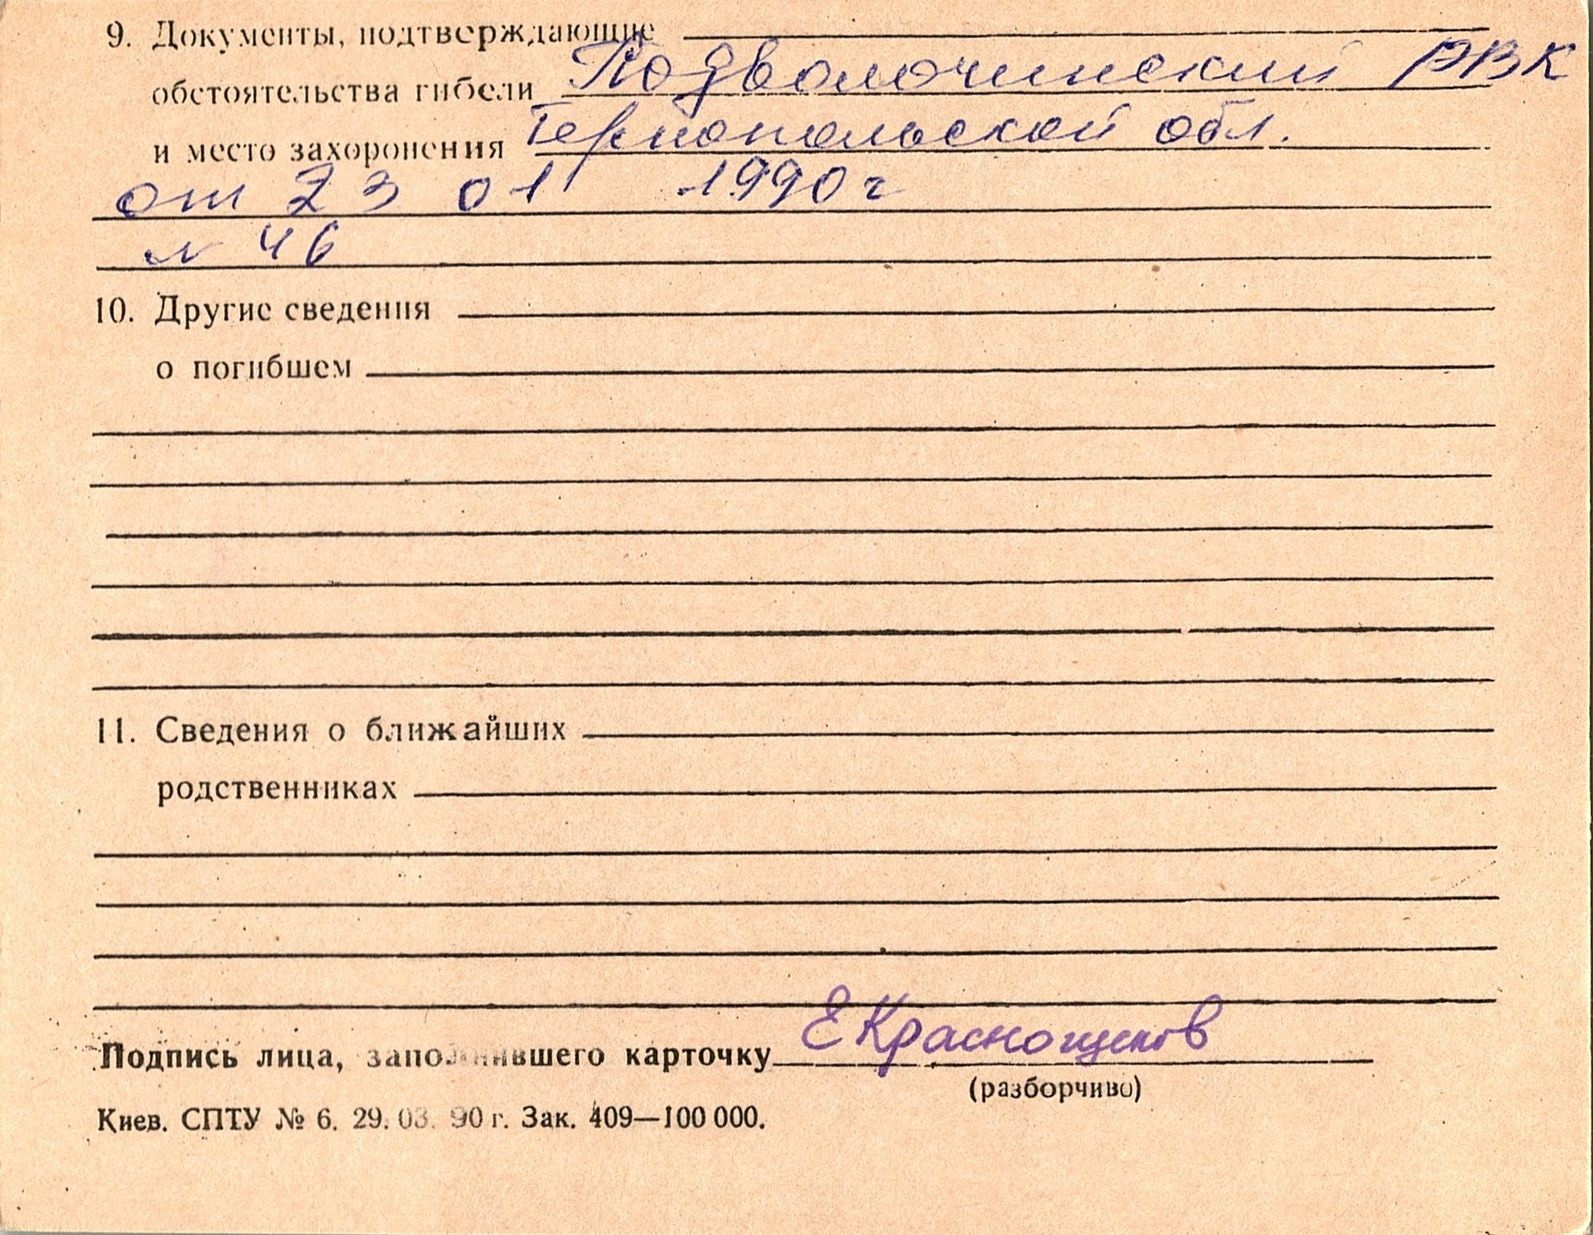 9. Документы, подтверждающие
обстоятельства гибели Подволочинский РВК
и место захоронения Тернопольской обл.
от 23 01 1990 г
№ 46
10. Другие сведения
о погибшем
11. Сведения о ближайших
родственниках
Подпись лица, заполнившего карточку Е Краснощеков
(разборчиво)
Киев. СПТУ № 6. 29. 03. 90 г. Зак. 409—100 000.